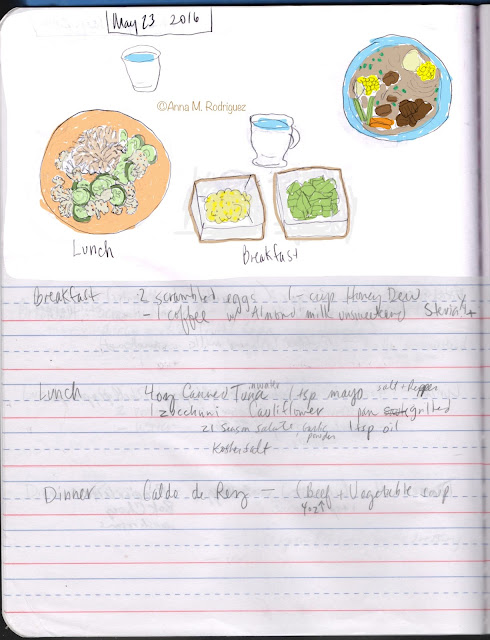 May 23 2016
©Anna M. Rodriguez
Lunch
Breakfast
Breakfast 2 scrambled eggs 1 - cup Honey Dew
- 1 coffee w/ Almond milk unsweetened Stevia
Lunch 4oz Canned Tuna in water 1 tsp mayo salt + Pepper
1 zucchini Cauliflower pan grilled
21 Season Salute garlic powder 1 tsp oil
Kosher salt
Dinner Caldo de Res — (Beef + Vegetable soup
4oz